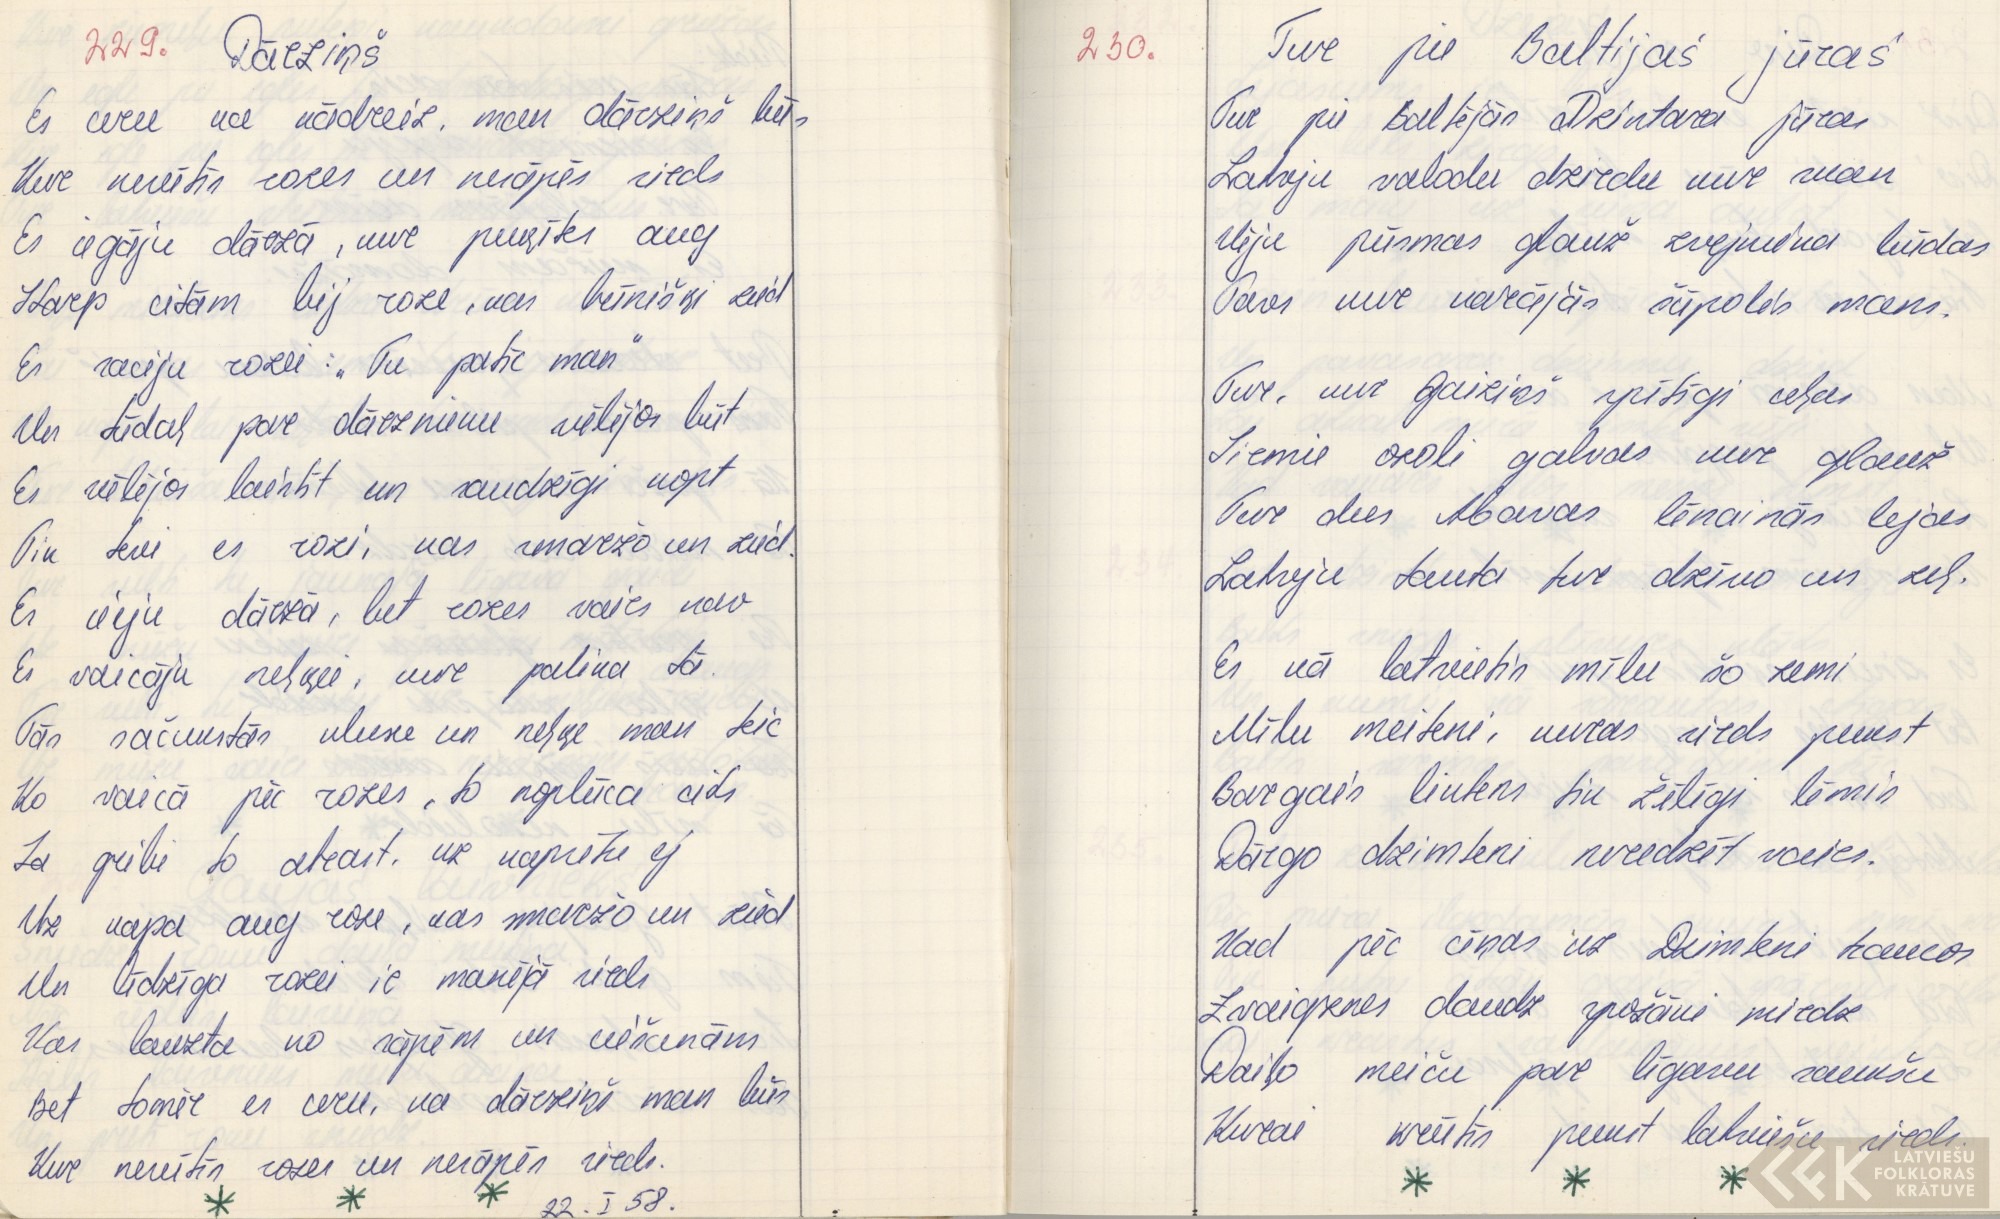 229. Dārziņš
Es ceru ka kādreiz, man dārziņš būs
Kur nevītīs rozes un nesāpēs sirds
Es iegāju dārzā, kur puķītes aug
Starp citām bij roze, kas brīnišķi zied
Es sacīju rozei: „Tu patīc man"
Un tūdaļ par dārznieku vēlējos būt
Es vēlējos laistīt un saudzīgi kopt
Tik tevi es rozi, kas smaržo un zied.
Es ieeju dārzā, bet rozes vairs nav
Es vaicāju neļķei, kur palika tā.
Tās sačukstās klusu un neļķe man teic
Ko vaicā pēc rozes, to noplūca cits
Ja gribi to atrast, uz kapsētu ej
Uz kapa aug roze, kas smaržo un zied
Un līdzīga rozei ir manējā sirds
Kas lauzta no sāpēm un ciešanām
Bet tomēr es ceru, ka dārziņš man būs
Kur nevītīs rozes un nesāpēs sirds.
22. I 58.
230. Tur pie Baltijas jūras
Tur pie Baltējās Dzintara jūras
Latvju valodu dzirdu kur man
Vēju pūsmas glauž zvejnieka būdas
Tavs kur karājās šūpolis mans.
Tur, kur Gaiziņš spītīgi ceļas
Sirmie ozoli galvas kur glauž
Tur dus Abavas lēnainās lejas
Latvju tauta tur dzīvo un zeļ.
Es kā latvietis mīlu šo zemi
Mīlu meiteni, kuras sirds pukst
Bargais liktens tik žēlīgi lēmis
Dārgo dzimteni neredzēt vairs.
Kad pēc cīņas uz Dzimteni traucos
Zvaigznes daudz spožāki mirdz
Daiļo meiču par līgavu saukšu
Kurai krūtīs pukst latviešu sirds.
LATVIEŠU
FOLKLORAS
KRĀTUVE